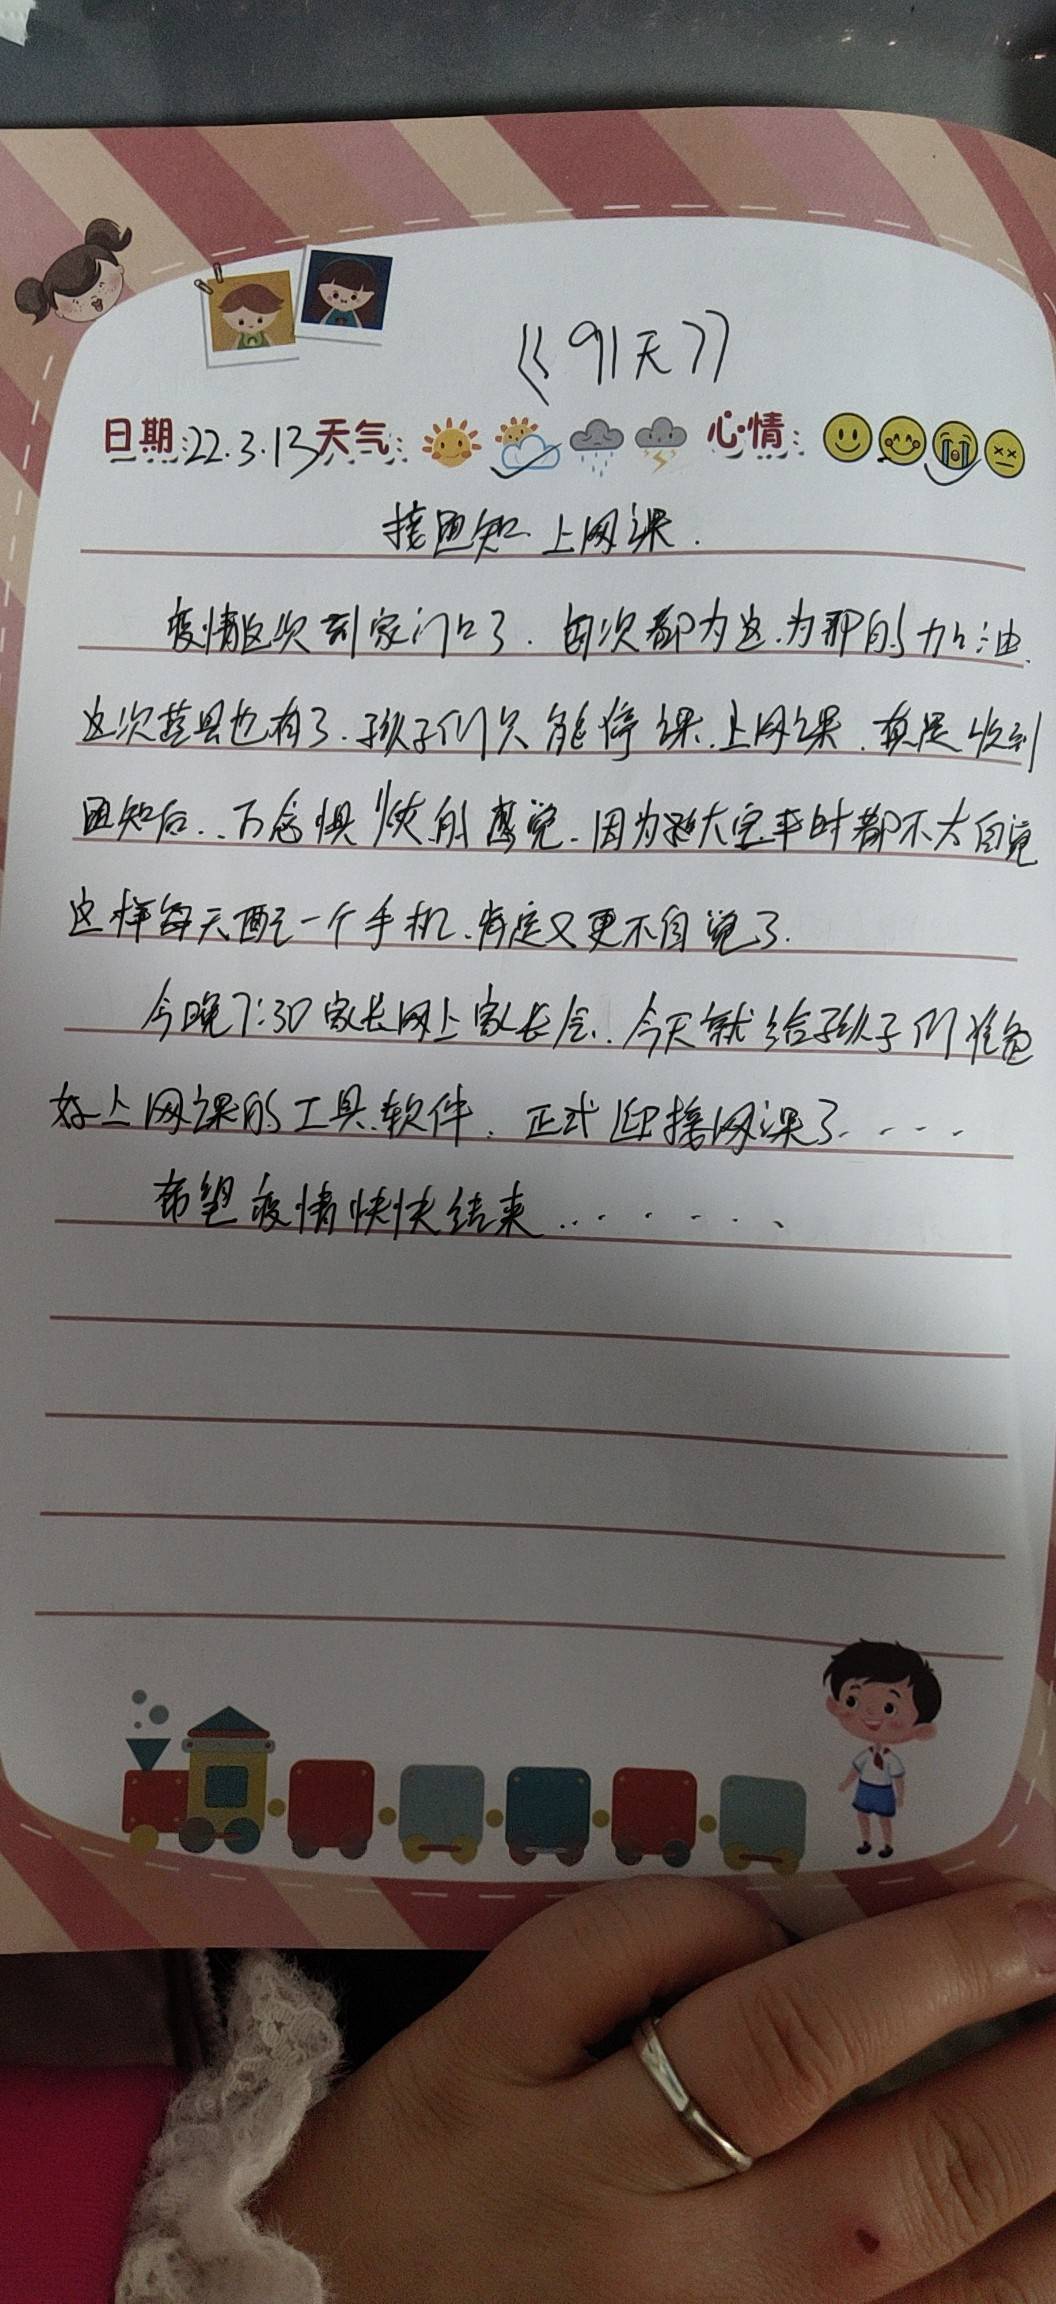 《91天》
日期:22.3.13天气: 心情:
接通知上网课.
疫情这次到家门口了.每次都为这.为那的加油.
这次莒县也有了.孩子们只能停课.上网课.真是收到
通知后..万念惧恢的感觉.因为赵大宝平时都不太自觉
这样每天配一个手机.肯定又更不自觉了.
今晚7:30家长网上家长会.今天就给孩子们准备
好上网课的工具.软件.正式迎接网课了.....
希望疫情快快结束.......